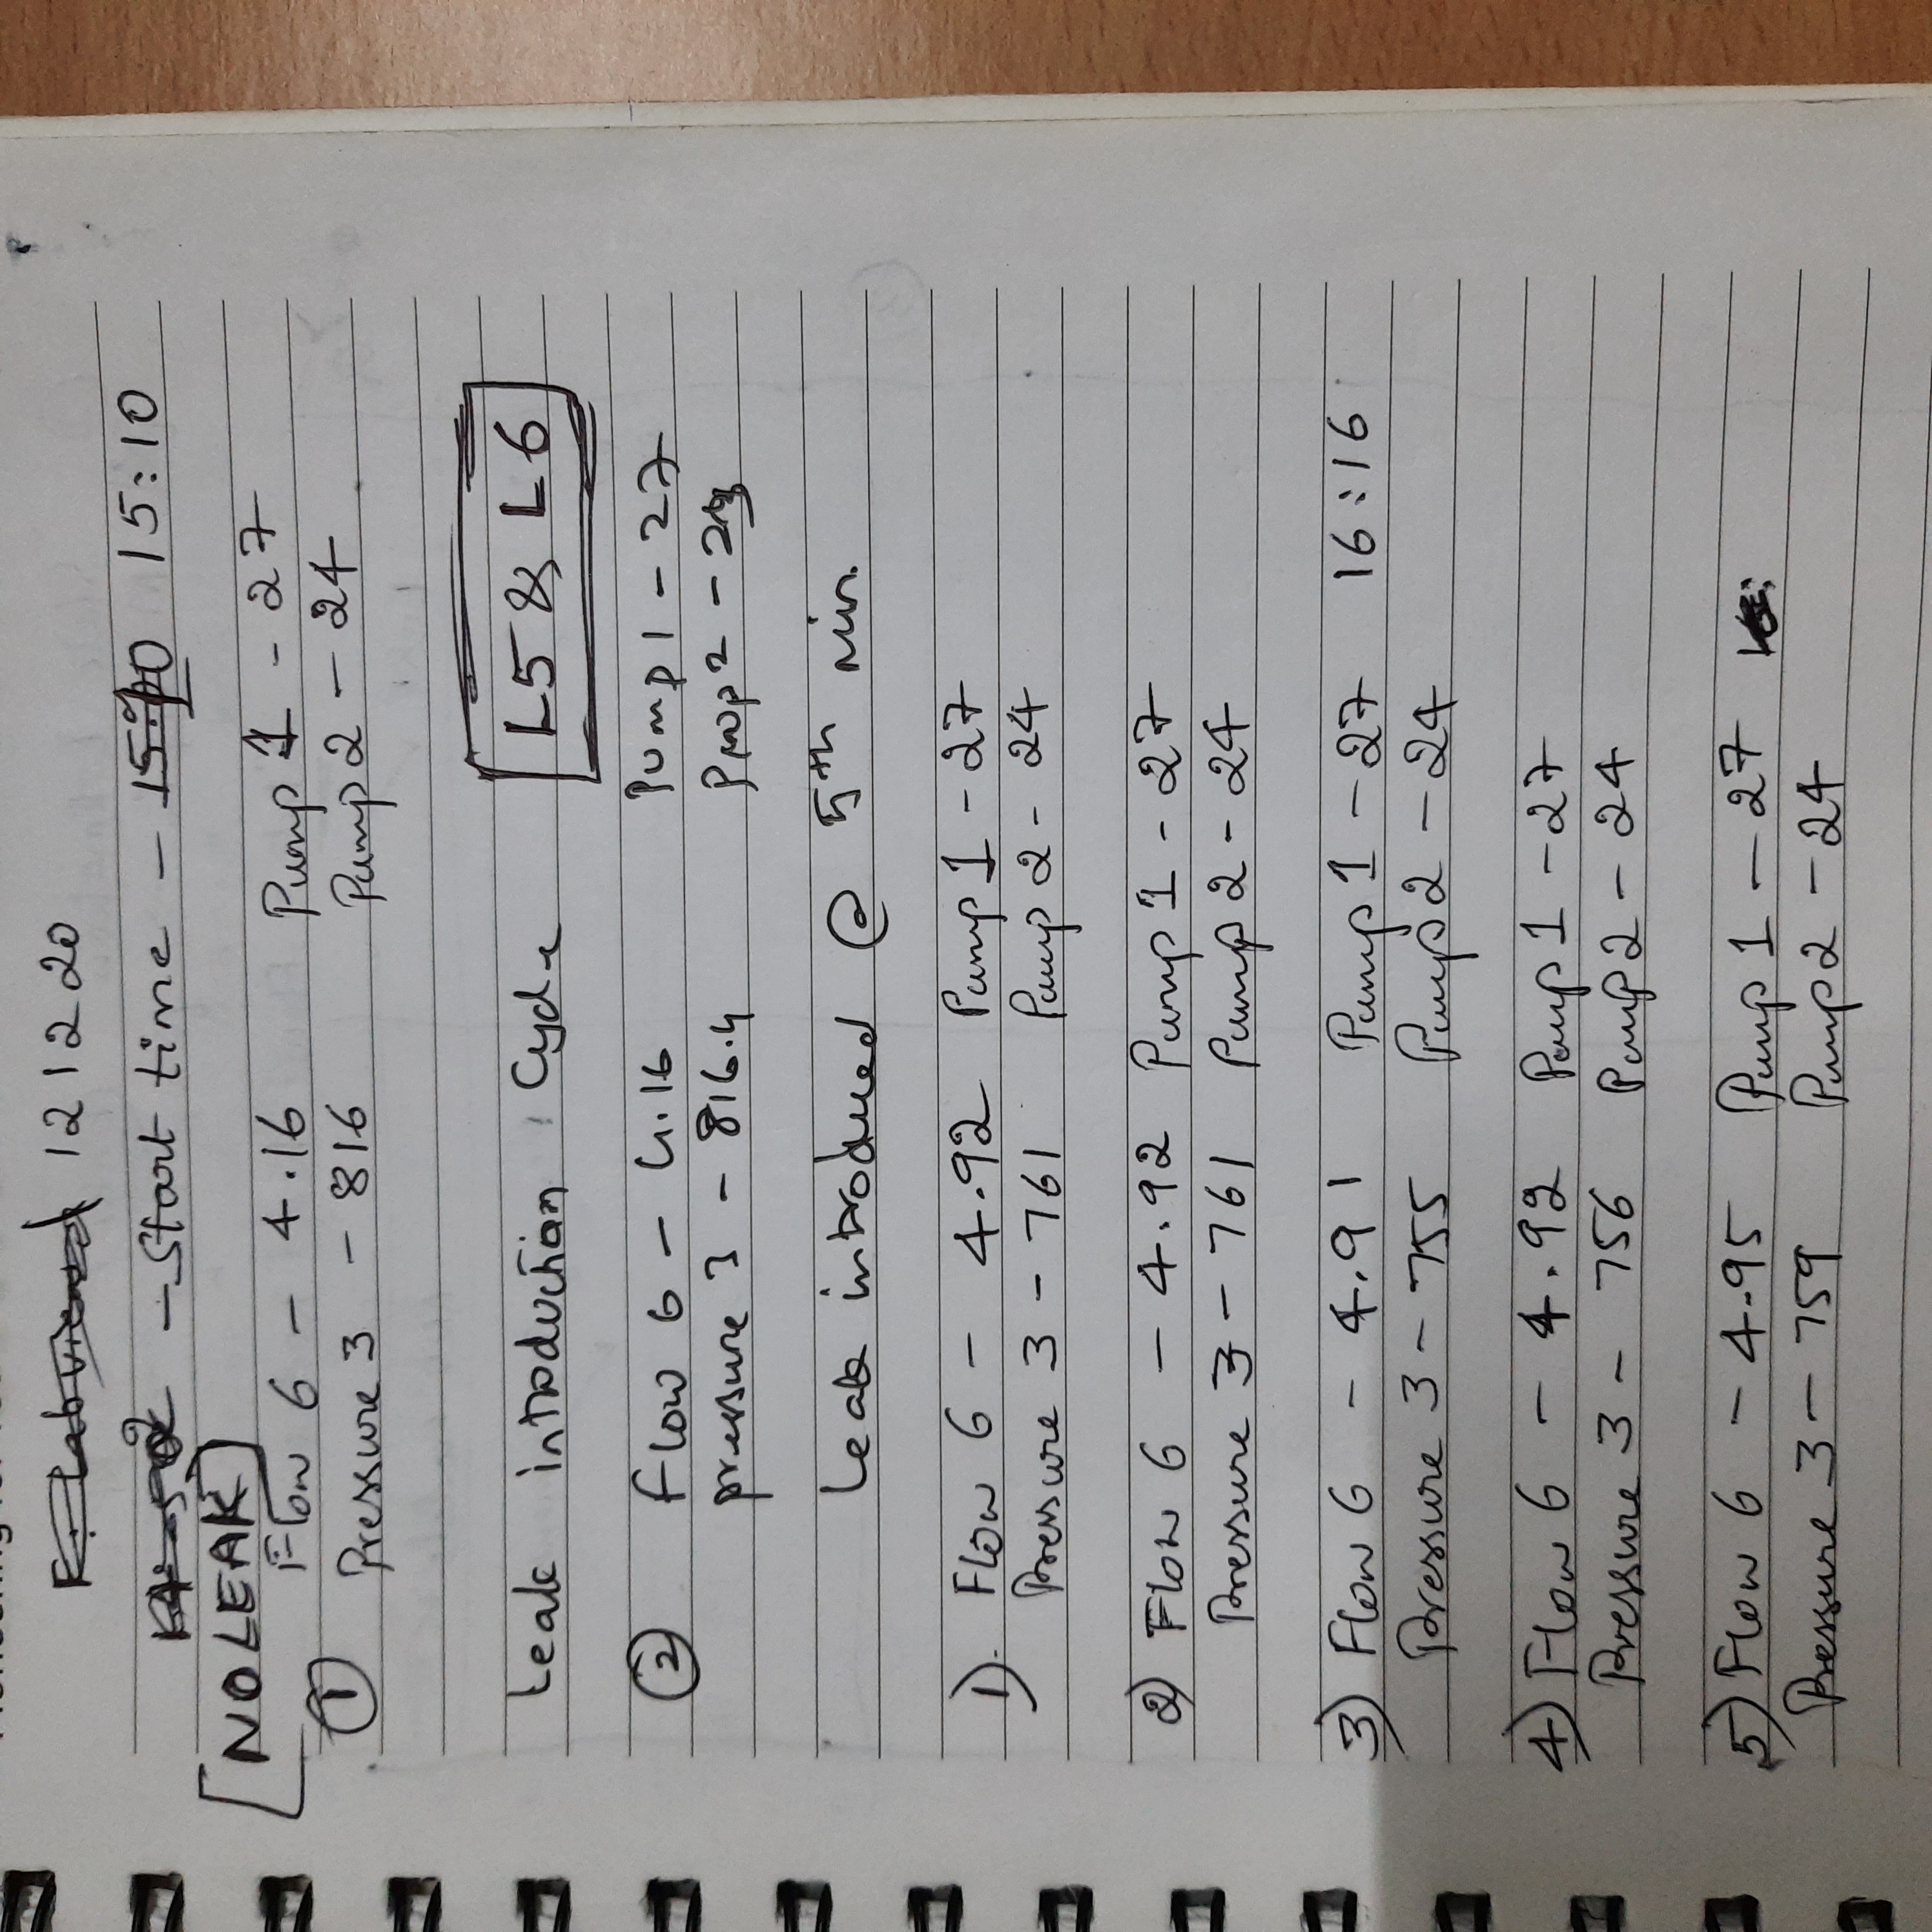 121220
- Start time - 15:10
[NO LEAK]
Flow 6 - 4.16 Pump 1 - 27
① Pressure 3 - 816 Pump 2 - 24
Leak introduction Cycle L5 & L6
② Flow 6 - 4.16 Pump 1 - 27
pressure 3 - 816.4
Leak introduced @ 5th min.
1). Flow 6 - 4.92 Pump 1 - 27
Pressure 3 - 761 Pump 2 - 24
2) Flow 6 - 4.92 Pump 1 - 27
Pressure 3 - 761 Pump 2 - 24
3) Flow 6 - 4.91 Pump 1 - 27 16:16
Pressure 3 - 755 Pump 2 - 24
4) Flow 6 - 4.92 Pump 1 - 27
Pressure 3 - 756 Pump 2 - 24
5) Flow 6 - 4.95 Pump 1 - 27
Pressure 3 - 759 Pump 2 - 24